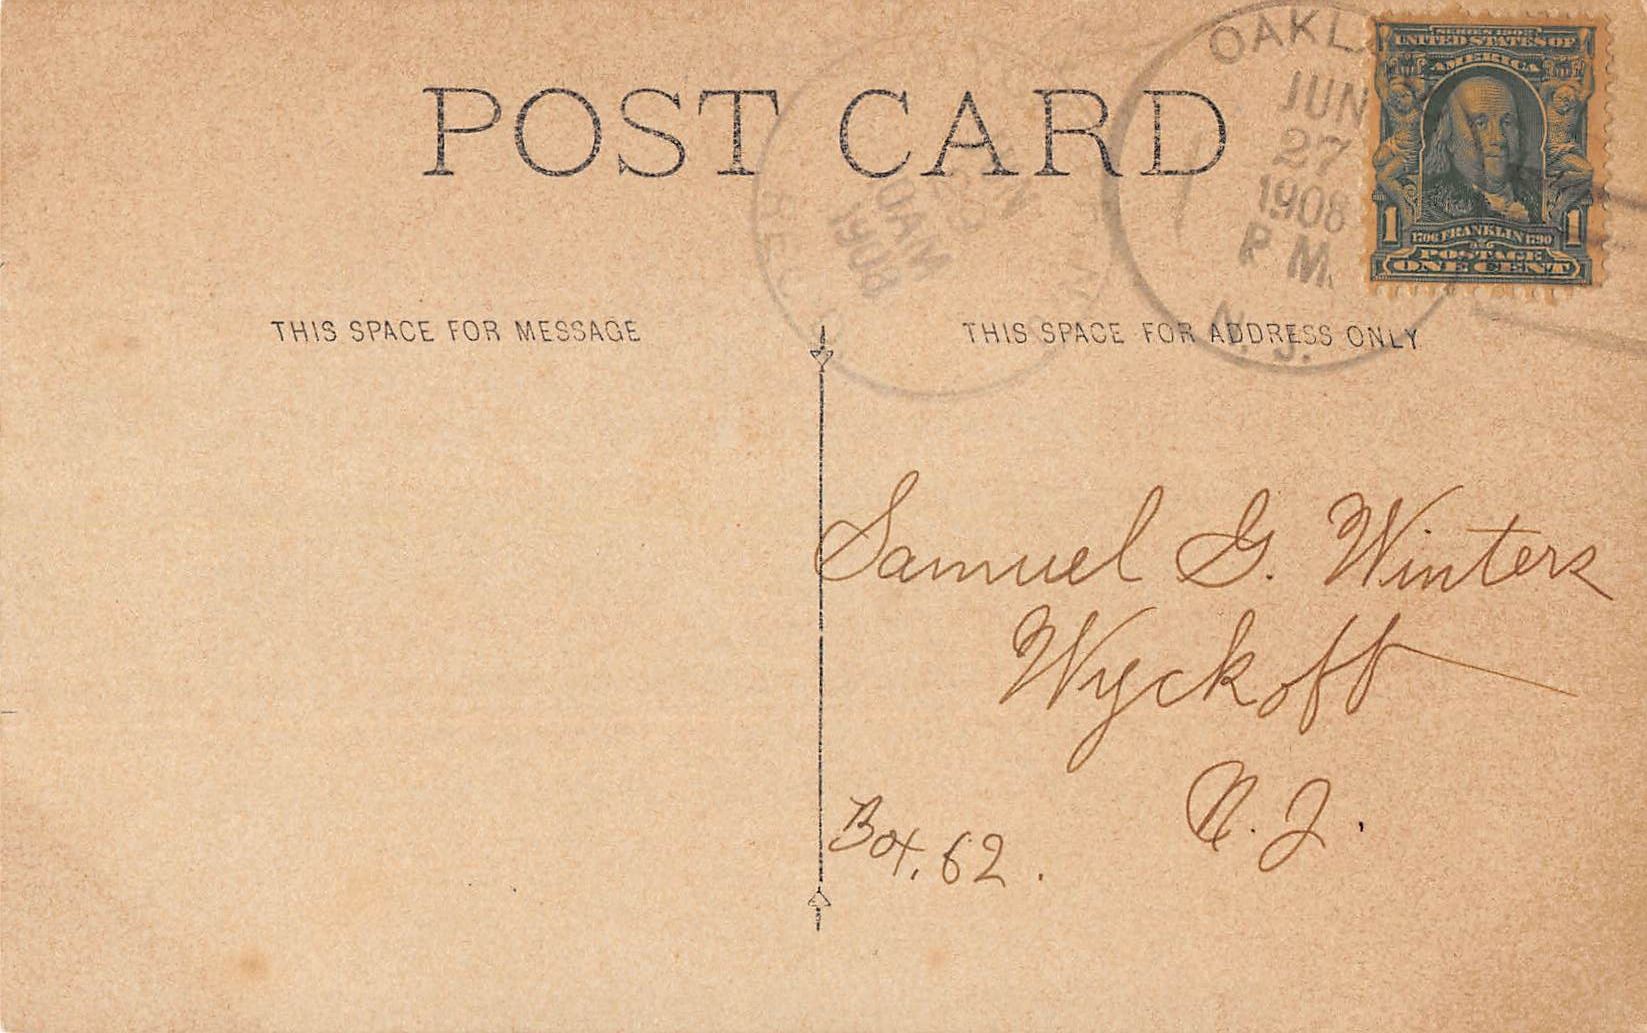 POST CARD
OAKL
JUN
27
1908
P M.
N. J.
SERIES 1902
UNITED STATES OF
AMERICA
1 1706 FRANKLIN 1790 1
POSTAGE
ONE CENT
REC'
10 AM
1908
THIS SPACE FOR MESSAGE
THIS SPACE FOR ADDRESS ONLY
Samuel G. Winters
Wyckoff
N. J.
Box. 62.